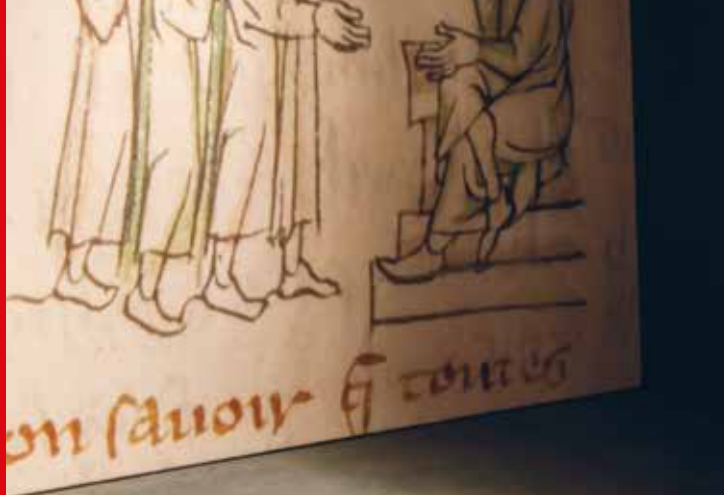 on sauoir q̄ toutes